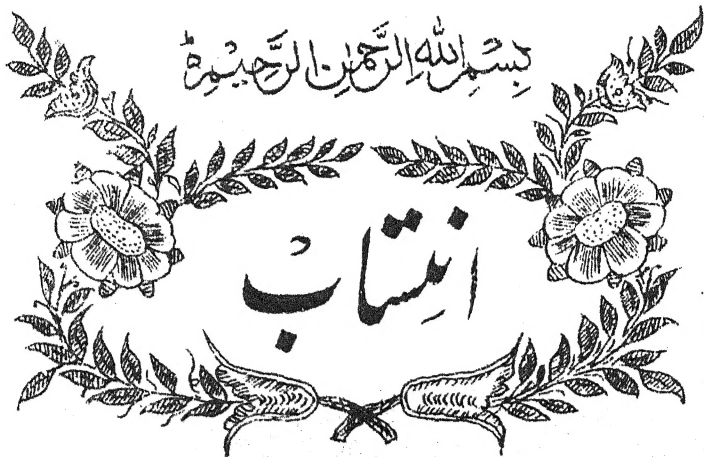 بِسْمِ اللهِ الرَّحْمٰنِ الرَّحِيْمِ
انتِسَابْ